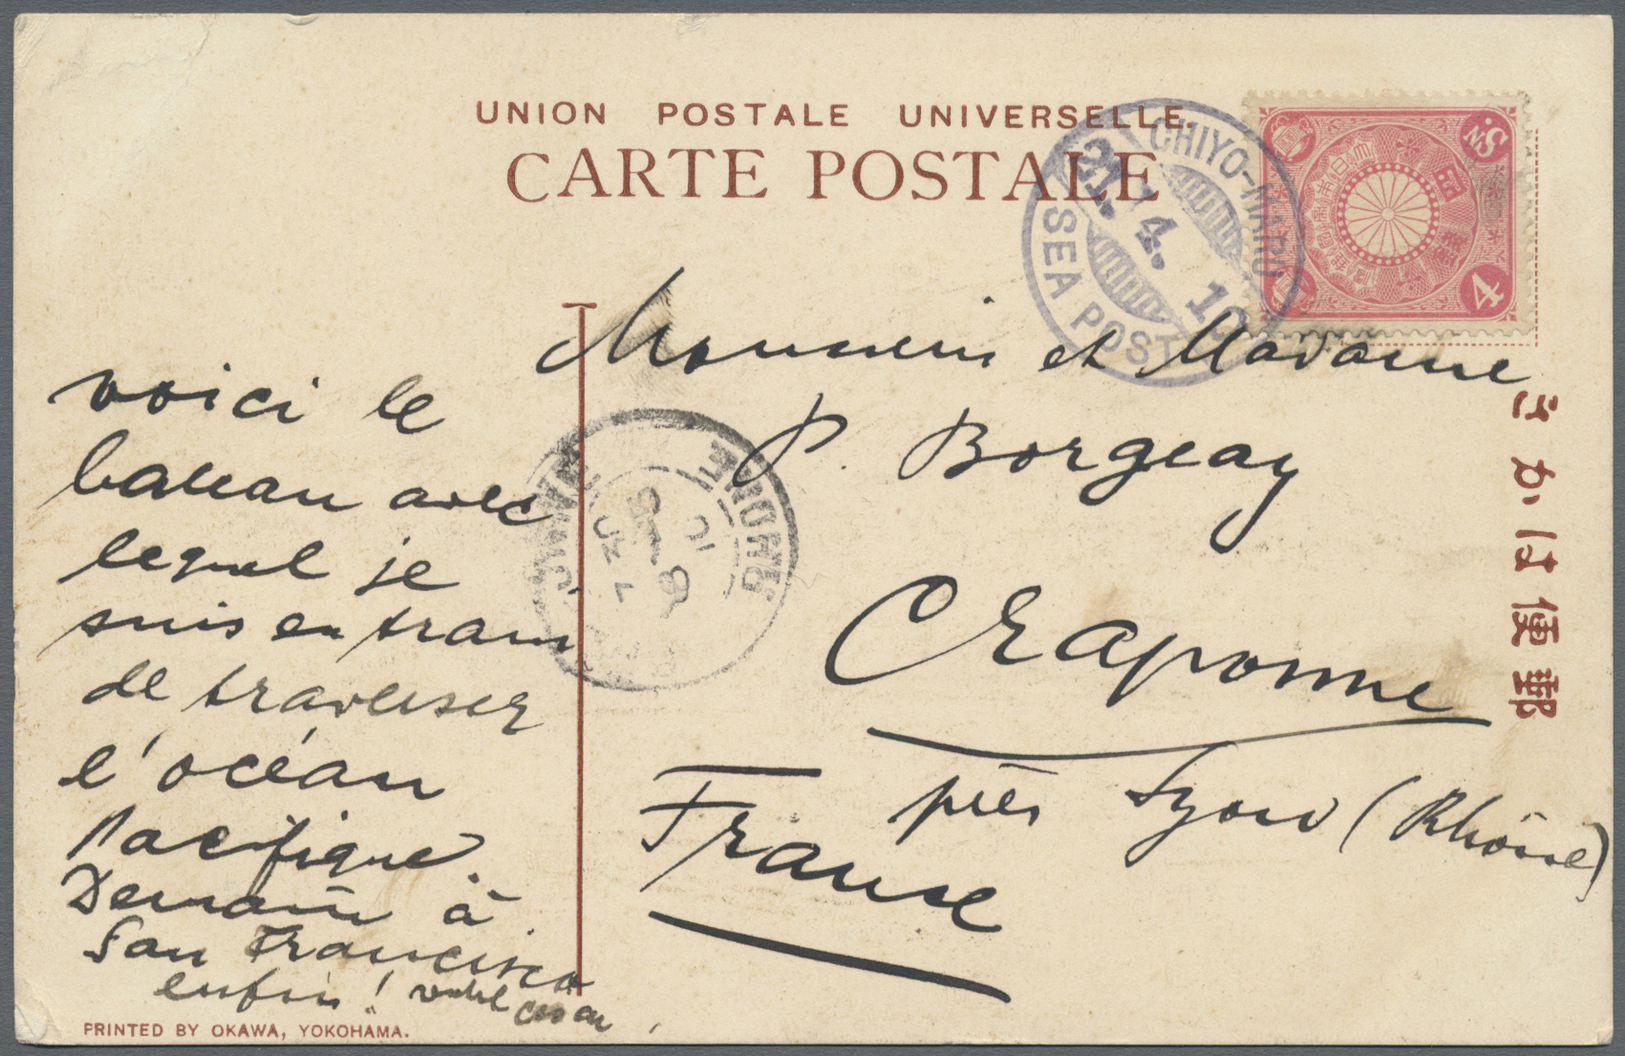 UNION POSTALE UNIVERSELLE.
CARTE POSTALE
CHIYO-MARU
21. 4. 10
SEA POST
4
Sn.
Monsieur et Madame
P. Borgeay
Craponne
près Lyon (Rhône)
France
きかは便郵
voici le
bateau avec
lequel je
suis en train
de traverser
l'océan
Pacifique.
Demain à
San Francisco
enfin!
RHONE
PRINTED BY OKAWA, YOKOHAMA.